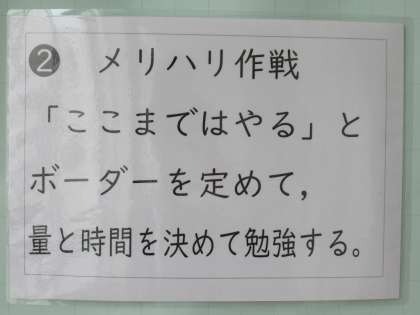 ❷ メリハリ作戦
「ここまではやる」と
ボーダーを定めて，
量と時間を決めて勉強する。